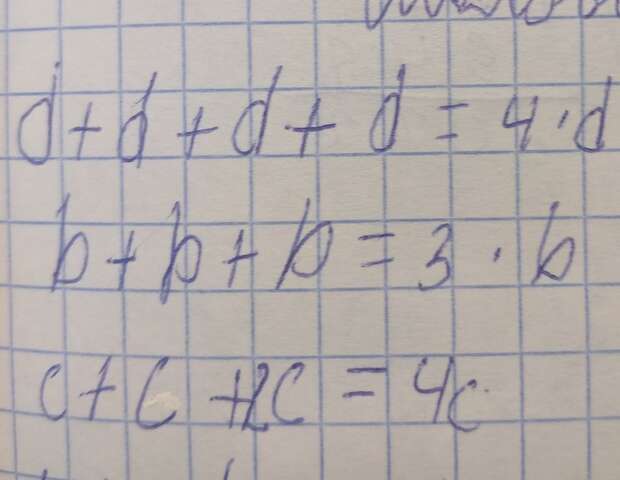 d+d+d+d=4·d
b+b+b=3·b
c+c+2c=4c